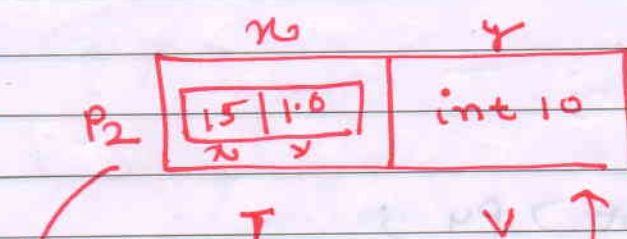 x y
P2 15 1.0 int 10
x y
T V